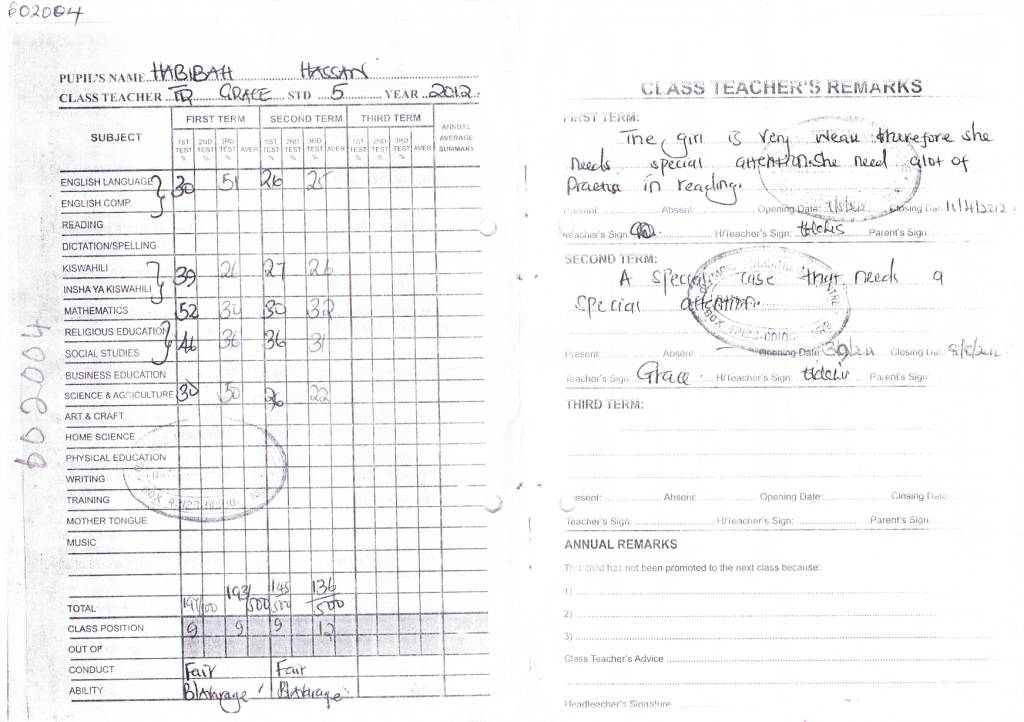 602004
PUPIL'S NAME HABIBAH HASSAN
CLASS TEACHER TR GRACE STD 5 YEAR 2012
SUBJECT FIRST TERM SECOND TERM THIRD TERM ANNUAL AVERAGE SUMMARY
1ST TEST % 2ND TEST % 3RD TEST % AVER 1ST TEST % 2ND TEST % 3RD TEST % AVER 1ST TEST % 2ND TEST % 3RD TEST % AVER
ENGLISH LANGUAGE 30 51 26 25
ENGLISH COMP.
READING
DICTATION/SPELLING
KISWAHILI 39 26 27 26
INSHA YA KISWAHILI
MATHEMATICS 52 30 30 32
RELIGIOUS EDUCATION 46 36 36 31
SOCIAL STUDIES
BUSINESS EDUCATION
SCIENCE & AGRICULTURE 30 50 26 22
ART & CRAFT
HOME SCIENCE
PHYSICAL EDUCATION
WRITING
TRAINING
MOTHER TONGUE
MUSIC
TOTAL 197/500 193/500 145/500 136/500
CLASS POSITION 9 9 9 12
OUT OF
CONDUCT Fair Fair
ABILITY Bl/Average Bl/Average
602004
CLASS TEACHER'S REMARKS
FIRST TERM:
The girl is very weak therefore she
needs special attention. She need alot of
in reading.
Present: Absent: Opening Date: Closing Date 11/4/2012
Teacher's Sign H/Teacher's Sign: Parent's Sign:
SECOND TERM:
A special case that needs a
special attention.
Present: Absent: Opening Date: Closing Date 8/8/2012
Teacher's Sign Grace H/Teacher's Sign: Parent's Sign
THIRD TERM:
Present: Absent: Opening Date: Closing Date
Teacher's Sign: H/Teacher's Sign: Parent's Sign
ANNUAL REMARKS
This child has not been promoted to the next class because:
1)
2)
3)
Class Teacher's Advice
Headteacher's Signature